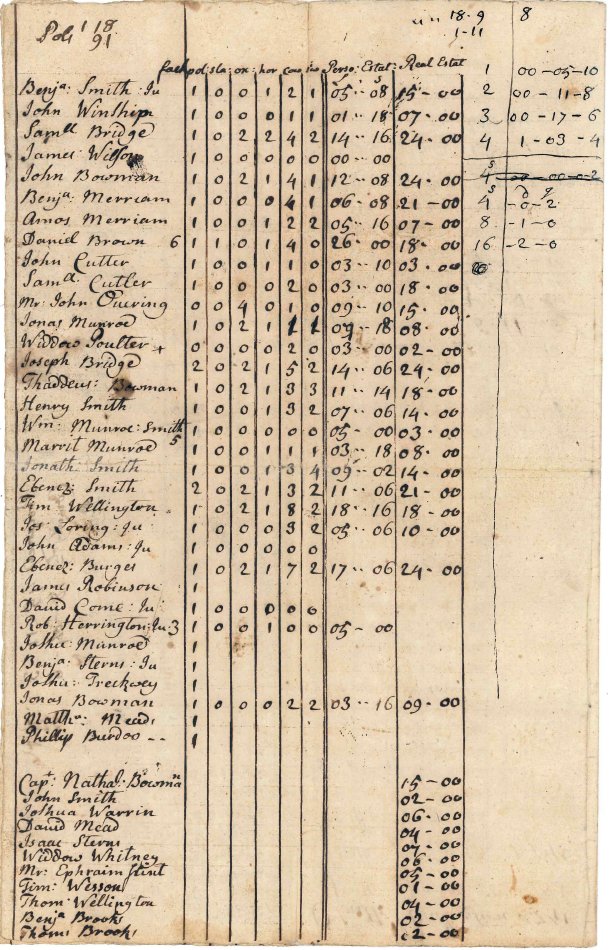 Pols 118
91
18-9 8
1-11
fach pol: sla: ox: hor cow swo Perso: Estat: Real Estat
1 00-05-10
Benja: Smith: Ju 1 0 0 1 2 1 05·· 08 15-00
2 00-11-8
John Winship 1 0 0 0 1 1 01·· 18 07-00
3 00-17-6
Samll Bridge 1 0 2 2 4 2 14·· 16 24-00
4 1-03-4
James Wilson 1 0 0 0 0 0 00-00
John Bowman 1 0 2 1 4 1 12·· 08 24-00
4s 00-00-0-2
Benja: Merriam 1 0 0 0 4 1 06·· 08 21-00
4s -0-2
Amos Merriam 1 0 0 1 2 2 05·· 16 07-00
8 -1-0
Daniel Brown 6 1 1 0 1 4 0 26·· 00 18-00
16 -2-0
John Cutter 1 0 0 1 1 0 03·· 10 03-00
Samll: Cutler 1 0 0 0 2 0 03·· 00 18-00
Mr: John 0 0 4 0 1 0 09·· 10 15-00
Jonas Munroe 1 0 2 1 1 1 09·· 18 08-00
Widdow Poulter + 0 0 0 0 2 0 03·· 00 02-00
Joseph Bridge 2 0 2 1 5 2 14·· 06 24-00
Thaddeus: Bowman 1 0 2 1 3 3 11·· 14 18-00
Henry Smith 1 0 0 1 3 2 07·· 06 14-00
Wm: Munroe: Smith 1 0 0 0 0 0 05·· 00 03-00
Marrit Munroe 5 1 0 0 1 1 1 03·· 18 08-00
Jonath: Smith 1 0 0 1 3 4 09·· 02 14-00
Ebenez: Smith 2 0 2 1 3 2 11·· 06 21-00
Tim: Wellington 1 0 2 1 8 2 18·· 16 18-00
Jos: Loring: Ju 1 0 0 0 3 2 05·· 06 10-00
John Adams: Ju 1 0 0 0 0 0
Ebenez: Burges 1 0 2 1 7 2 17·· 06 24-00
James Robinson 1
David Come: Ju 1 0 0 0 0 0
Rob: Herrington: Ju: 3 1 0 0 1 0 0 05-00
Joshu: Munroe 1
Benja: Sterns: Ju 1
Joshu: Treckwey 1
Jonas Bowman 1 0 0 0 2 2 03·· 16 09-00
Matthw: Mead: 1
Phillip Burdoo - - 1
Capt: Nathal: Bowman 15-00
John Smith 02-00
Joshua Warrin 06-00
David Mead 04-00
Isaac Sterns 07-00
Widdow Whitney 06-00
Mr: Ephraim Flint 05-00
Tim: Wesson 01-00
Thom: Wellington 04-00
Benja Brooks 02-00
Thoms Brooks 12-00